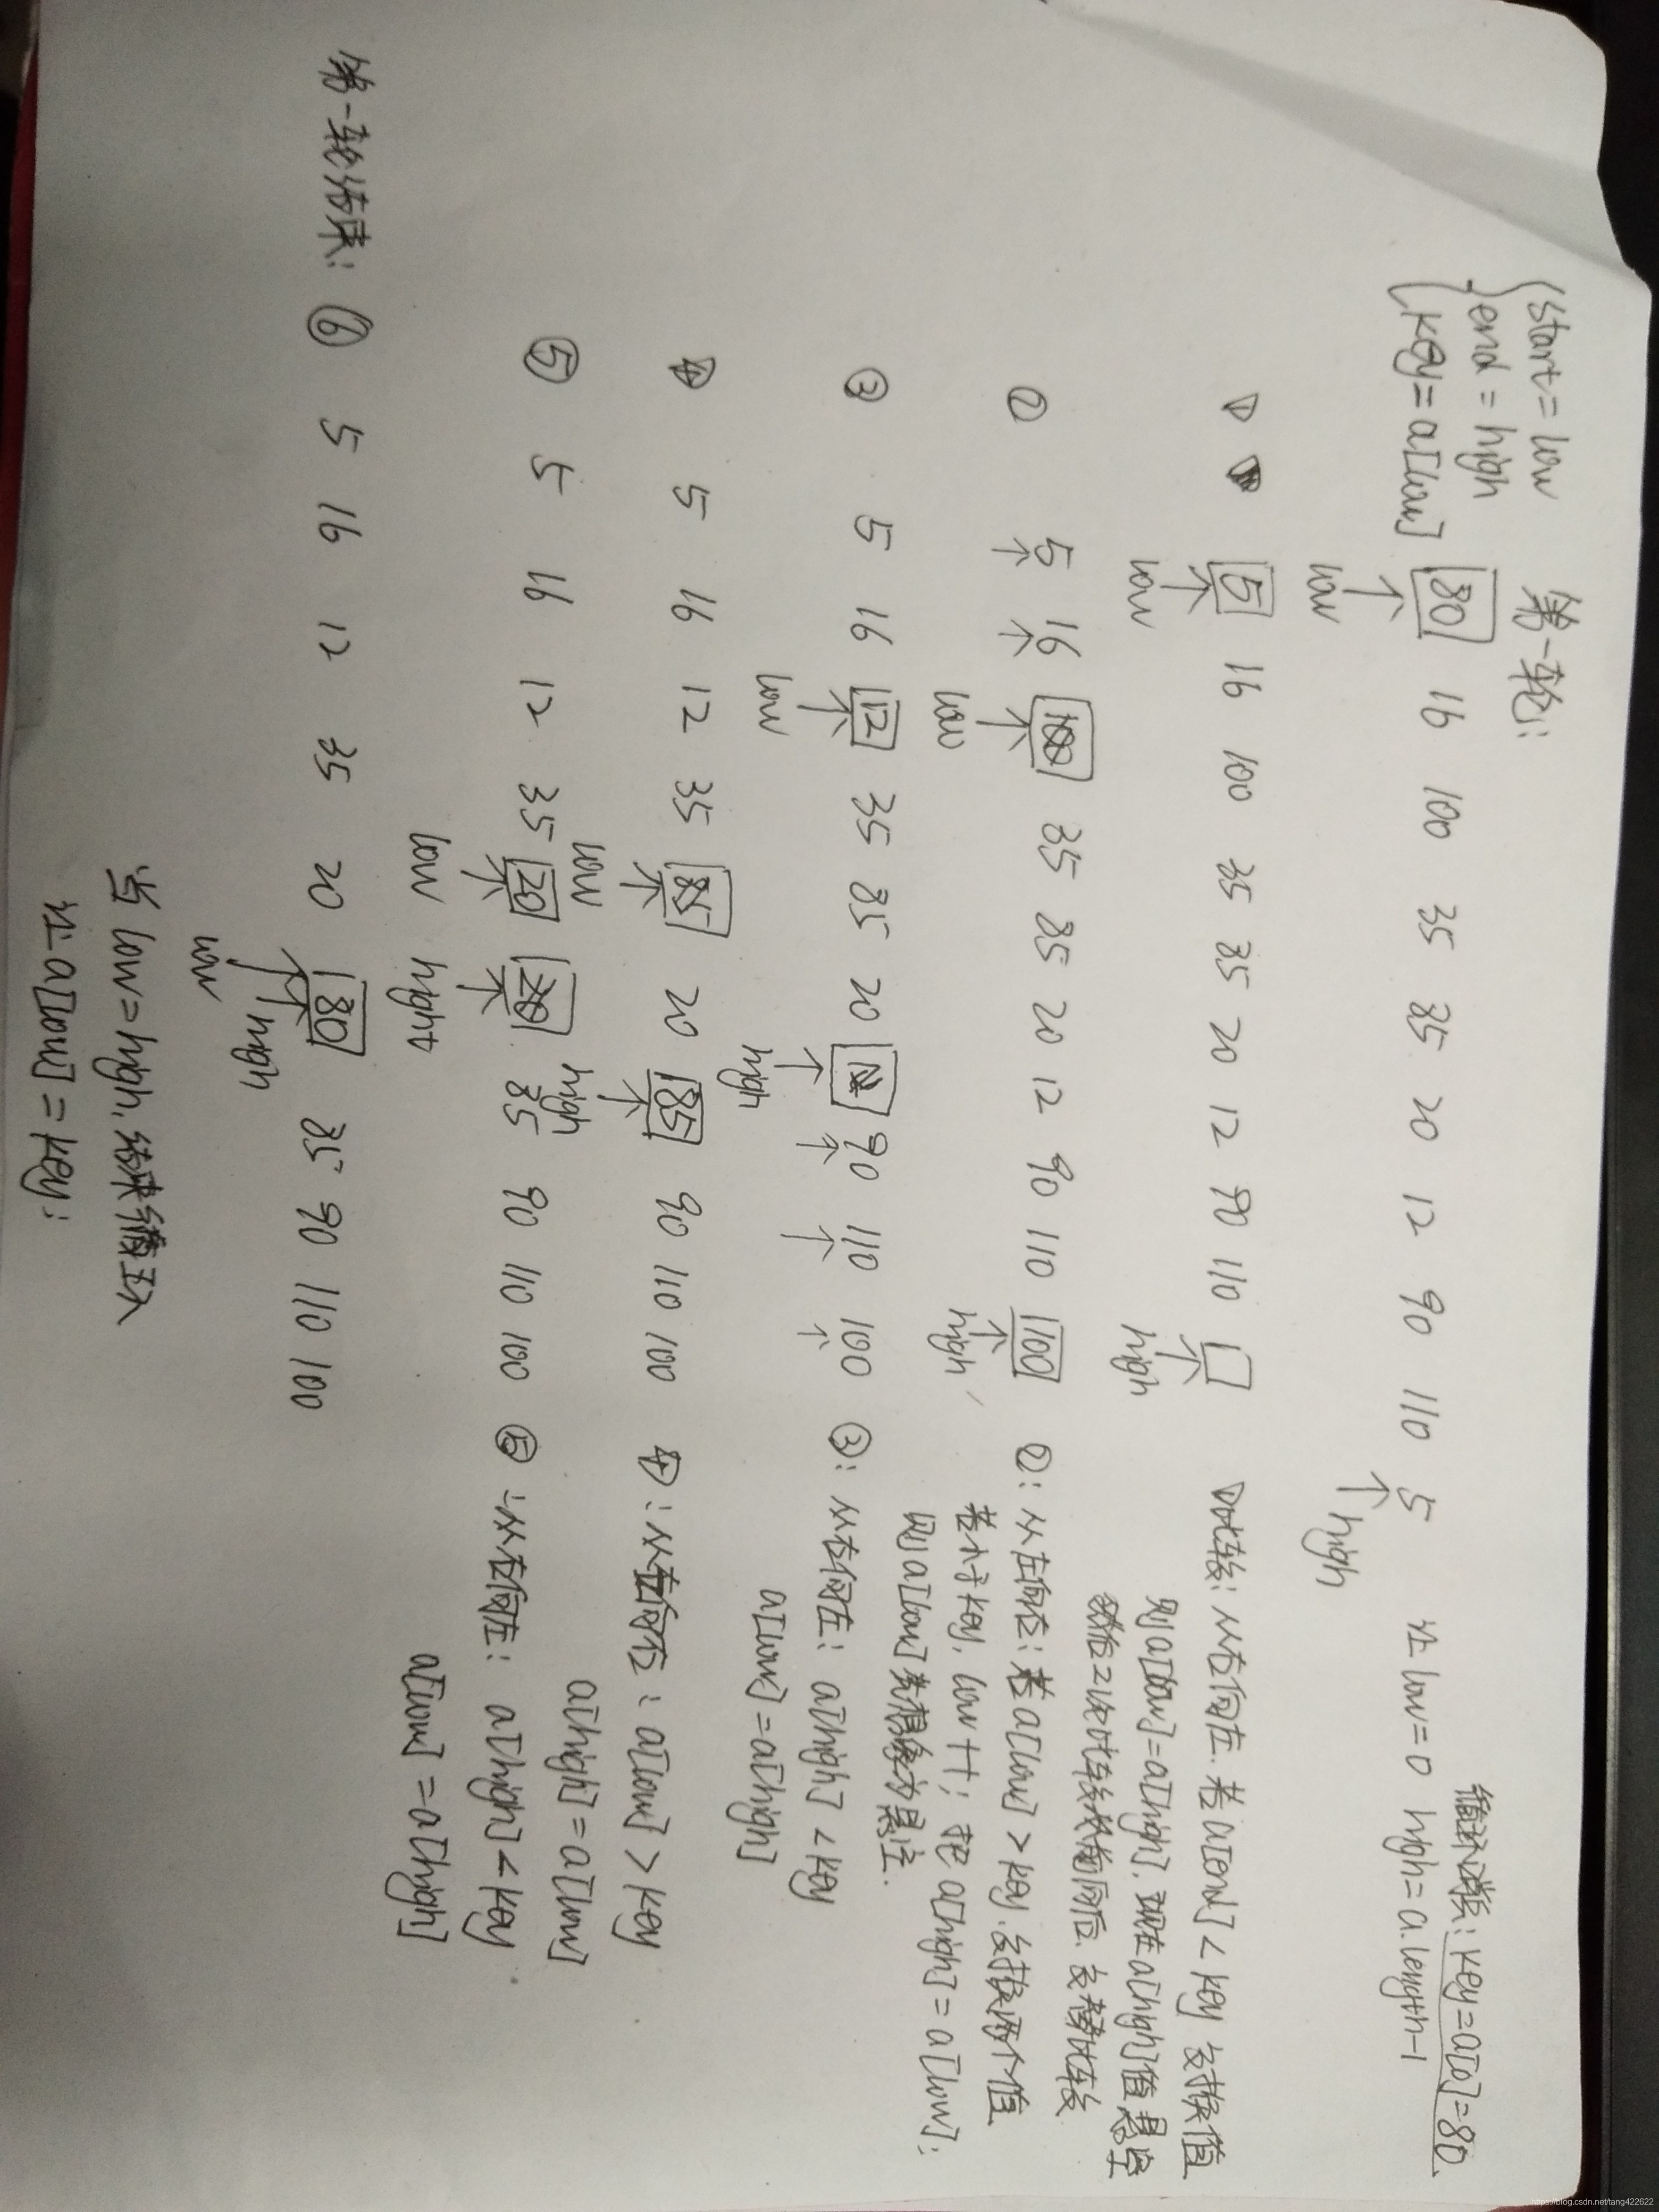 第一轮:
start = low
end = high
key = a[low]
80 16 100 35 85 20 12 90 110 5
low high
key=a[0]=80.
low=0 high=a.length-1
① 5 16 100 35 85 20 12 90 110
low high
①比较: 从右向左. 若a[end]<key 交换值
则a[low]=a[high], 现在a[high]值悬空
② 5 16 100 35 85 20 12 90 110 100
low high
②: 从左向右: 若a[low]>key. 交换两个值
若小于key, low++; 把a[high]=a[low];
则a[low]
③ 5 16 12 35 85 20 12 90 110 100
low high
③: 从右向左: a[high]<key
a[low]=a[high]
④ 5 16 12 35 85 20 85 90 110 100
low high
④: 从左向右: a[low]>key
a[high]=a[low]
⑤ 5 16 12 35 20 20 85 90 110 100
low hight
⑤: 从右向左: a[high]<key
a[low]=a[high]
第一轮结束: ⑥ 5 16 12 35 20 80 85 90 110 100
low high
当low=high, 结束循环
让a[low]=key;
https://blog.csdn.net/tang422622